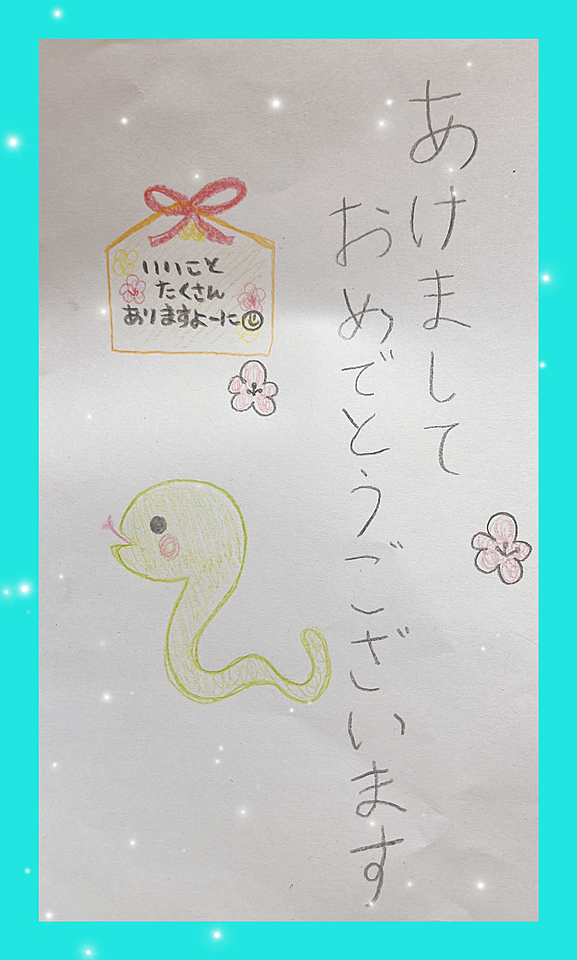 あけまして
おめでとうございます
いいこと
たくさん
ありますよーに